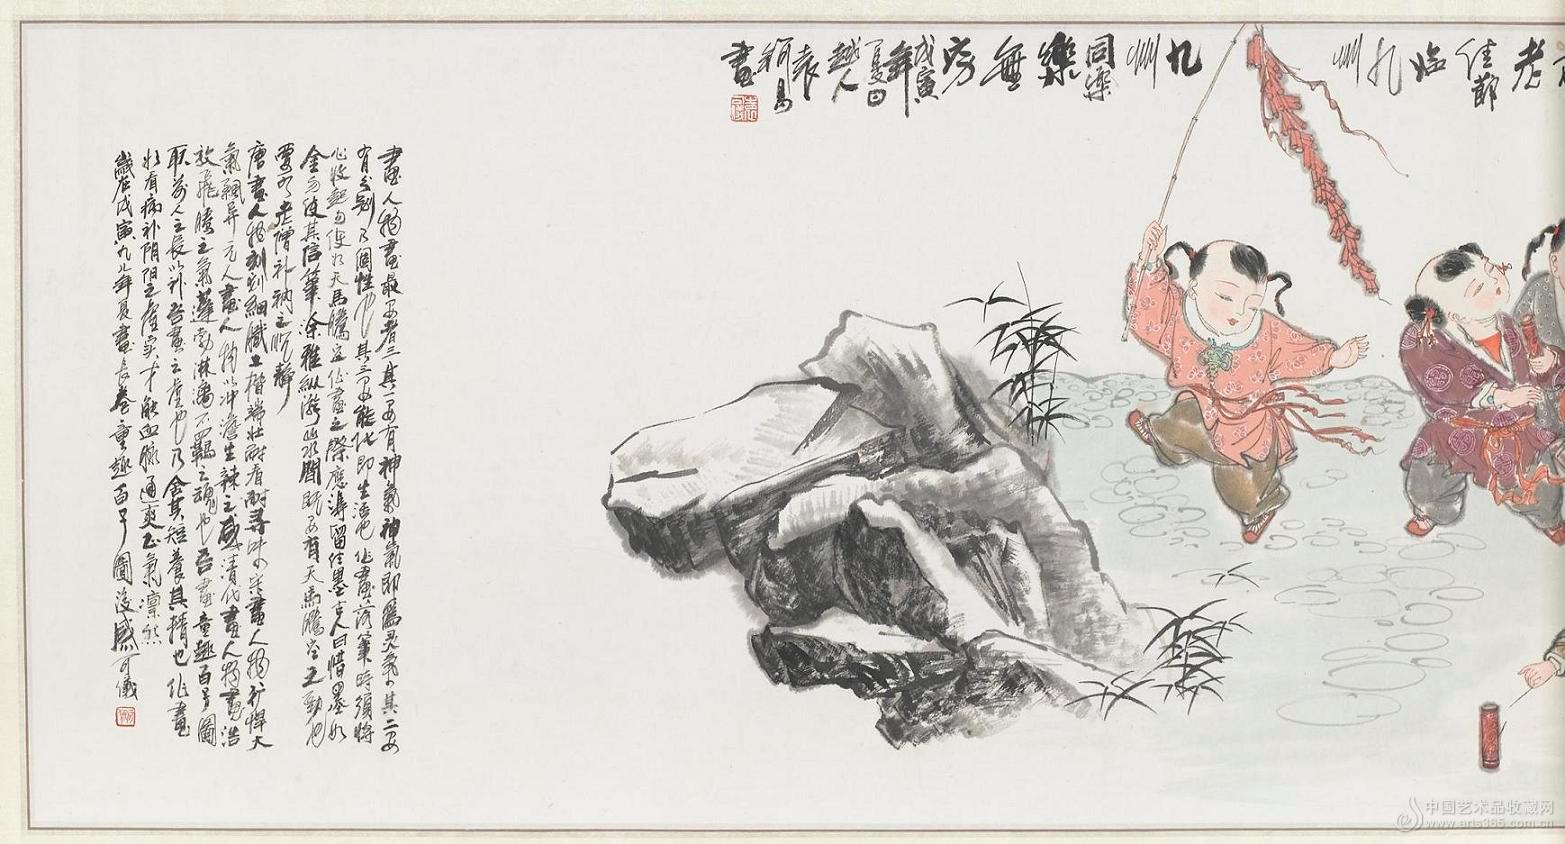 老
佳節
臨
九
州
九
州
同樂
樂
無
窮
戊寅
年
夏日
越人
袁
畫
畫人物畫最要者三其一要有神氣神氣即為靈氣也其二要
有分別乃個性也其三要能化即生活也作畫落筆時須將
心收起勿使如天馬騰空作畫之際應得留住墨古人曰惜墨如
金勿使其信筆塗雅縱游閒既要有天馬騰空之勁也
要有老僧補衲之沉靜
唐畫人物刻劃細膩工楷端壯耐看耐尋味宋畫人物行悍大
氣飄昇元人畫人物以沖澹生辣之感清代畫人物畫浩
放飛騰之氣蓬勃淋漓不羈之魂也吾畫童趣百子圖
取前人之長以補吾畫之虛也乃舍其短養其精也作畫
如看病補陰陽之虛實才能血脈通爽正氣凜然
歲在戊寅九八年夏畫長卷童趣百子圖後感可儀
中国艺术品收藏网
www.arts365.com.cn